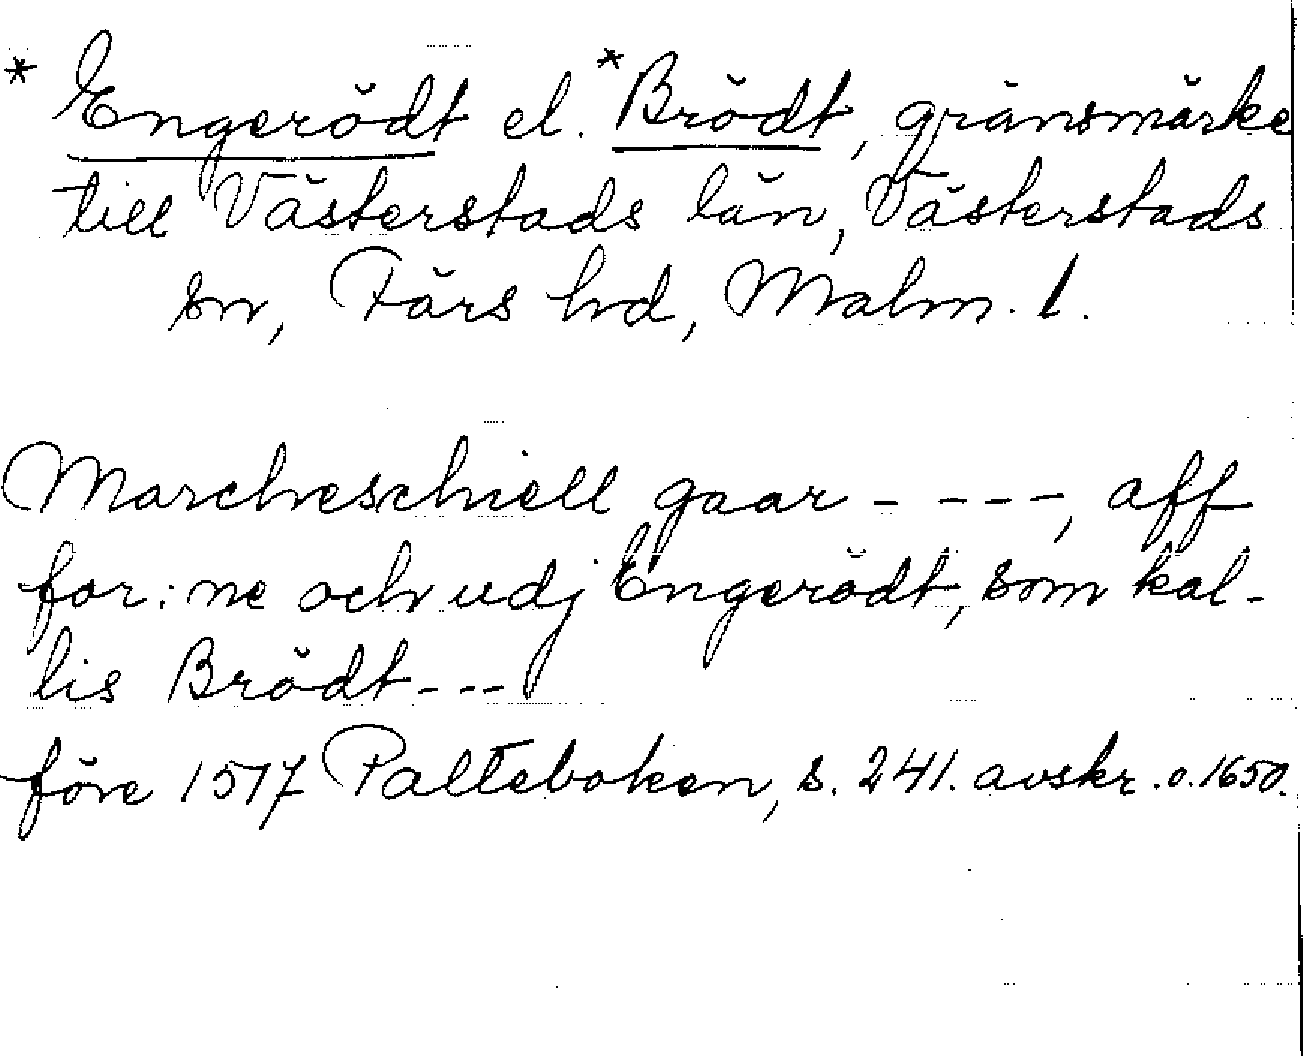 * Engerödt el. *Brödt, gränsmärke
till Västerstads län, Västerstads
sn, Färs hd, Malm. l.
Marcheschiell gaar - - - -, aff
for: ne och udj Engerödt, som kal-
lis Brödt - - -
före 1517 Palteboken, s. 241. avskr. o. 1650.